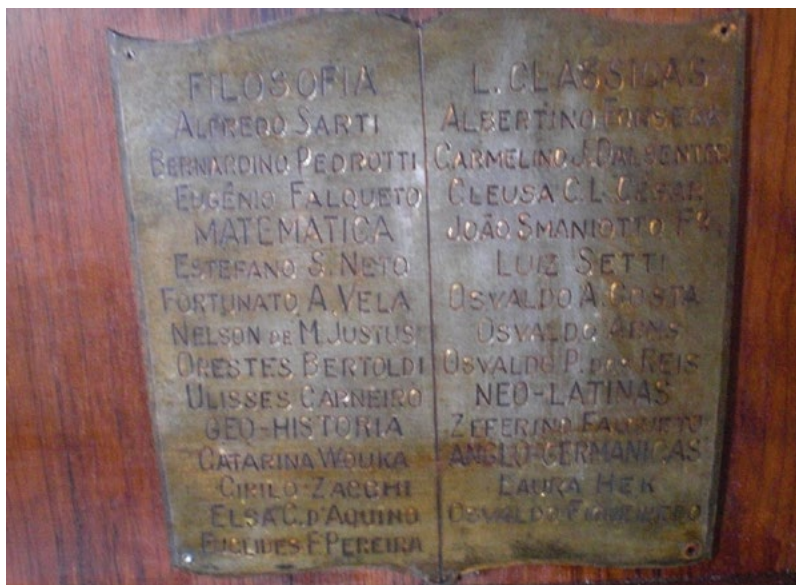 FILOSOFIA
ALFREDO SARTI
BERNARDINO PEDROTTI
EUGÊNIO FALQUETO
MATEMATICA
ESTEFANO S. NETO
FORTUNATO A. VELA
NELSON DE M. JUSTUS
ORESTES BERTOLDI
ULISSES CARNEIRO
GEO-HISTORIA
CATARINA WOUKA
CIRILO ZACCHI
ELSA C. D'AQUINO
EUCLIDES F. PEREIRA
L. CLASSICAS
ALBERTINO FONSECA
CARMELINO J. DALSENTER
CLEUSA C. L. CÉSAR
JOÃO SMANIOTTO Fº.
LUIZ SETTI
OSVALDO A. COSTA
OSVALDO ARNS
OSVALDO P. DOS REIS
NEO-LATINAS
ZEFERINO
ANGLO-GERMANICAS
LAURA HEK
OSVALDO FIGUEIREDO